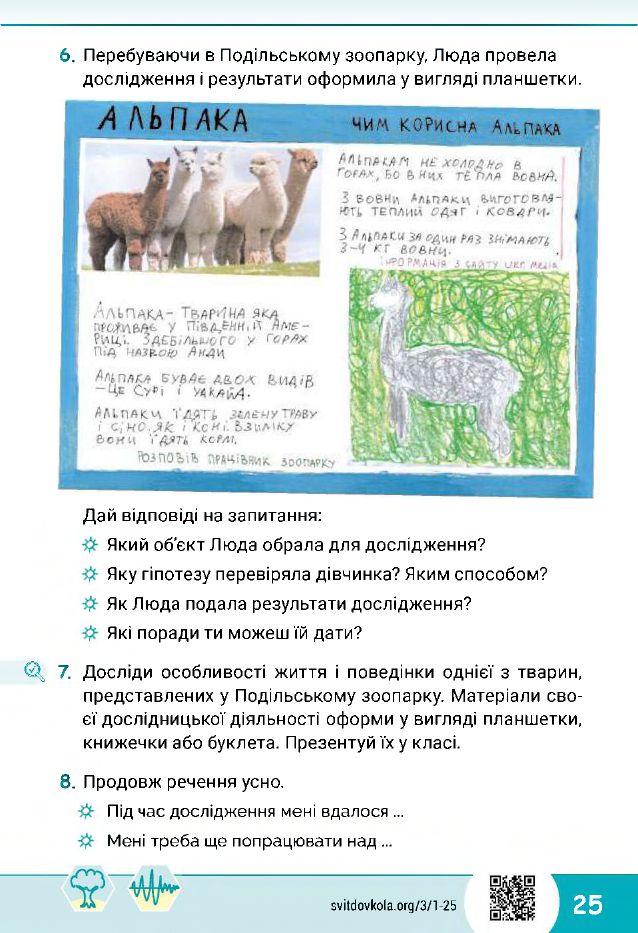 6. Перебуваючи в Подільському зоопарку, Люда провела
дослідження і результати оформила у вигляді планшетки.
АЛЬПАКА
ЧИМ КОРИСНА АЛЬПАКА
АЛЬПАКАМ НЕ ХОЛОДНО В
ГОРАХ, БО В НИХ ТЕПЛА ВОВНА.
З ВОВНИ АЛЬПАКИ ВИГОТОВЛЯ-
ЮТЬ ТЕПЛИЙ ОДЯГ І КОВДРИ.
З АЛЬПАКИ ЗА ОДИН РАЗ ЗНІМАЮТЬ
3-4 КГ ВОВНИ.
ІНФОРМАЦІЯ З САЙТУ УКР. МЕДІА
АЛЬПАКА - ТВАРИНА ЯКА
ПРОЖИВАЄ У ПІВДЕННІЙ АМЕ-
РИЦІ. ЗДЕБІЛЬШОГО У ГОРАХ
ПІД НАЗВОЮ АНДИ
АЛЬПАКА БУВАЄ ДВОХ ВИДІВ
- ЦЕ СУРІ І УАКАЙА.
АЛЬПАКИ ЇДЯТЬ ЗЕЛЕНУ ТРАВУ
І СІНО, ЯК І КОНІ. ВЗИМКУ
ВОНИ ЇДЯТЬ КОРМ.
РОЗПОВІВ ПРАЦІВНИК ЗООПАРКУ
Дай відповіді на запитання:
Який об'єкт Люда обрала для дослідження?
Яку гіпотезу перевіряла дівчинка? Яким способом?
Як Люда подала результати дослідження?
Які поради ти можеш їй дати?
7. Досліди особливості життя і поведінки однієї з тварин,
представлених у Подільському зоопарку. Матеріали сво-
єї дослідницької діяльності оформи у вигляді планшетки,
книжечки або буклета. Презентуй їх у класі.
8. Продовж речення усно.
Під час дослідження мені вдалося ...
Мені треба ще попрацювати над ...
svitdovkola.org/3/1-25
25